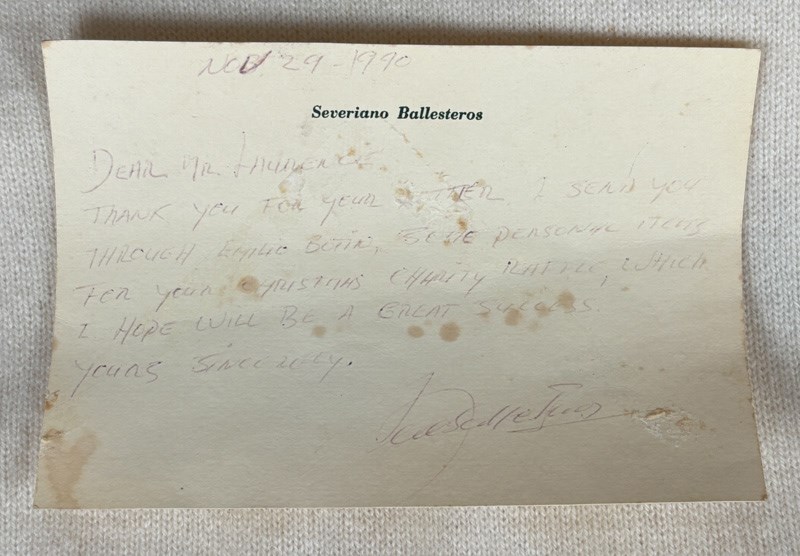 NOV 29-1990
Severiano Ballesteros
DEAR MR LAURENCE
THANK YOU FOR YOUR LETTER I SEND YOU
THROUGH EMILIO BOTIN, SOME PERSONAL ITEMS
FOR YOUR CHRISTMAS CHARITY RAFFLE, WHICH
I HOPE WILL BE A GREAT SUCCESS.
YOURS SINCERELY.